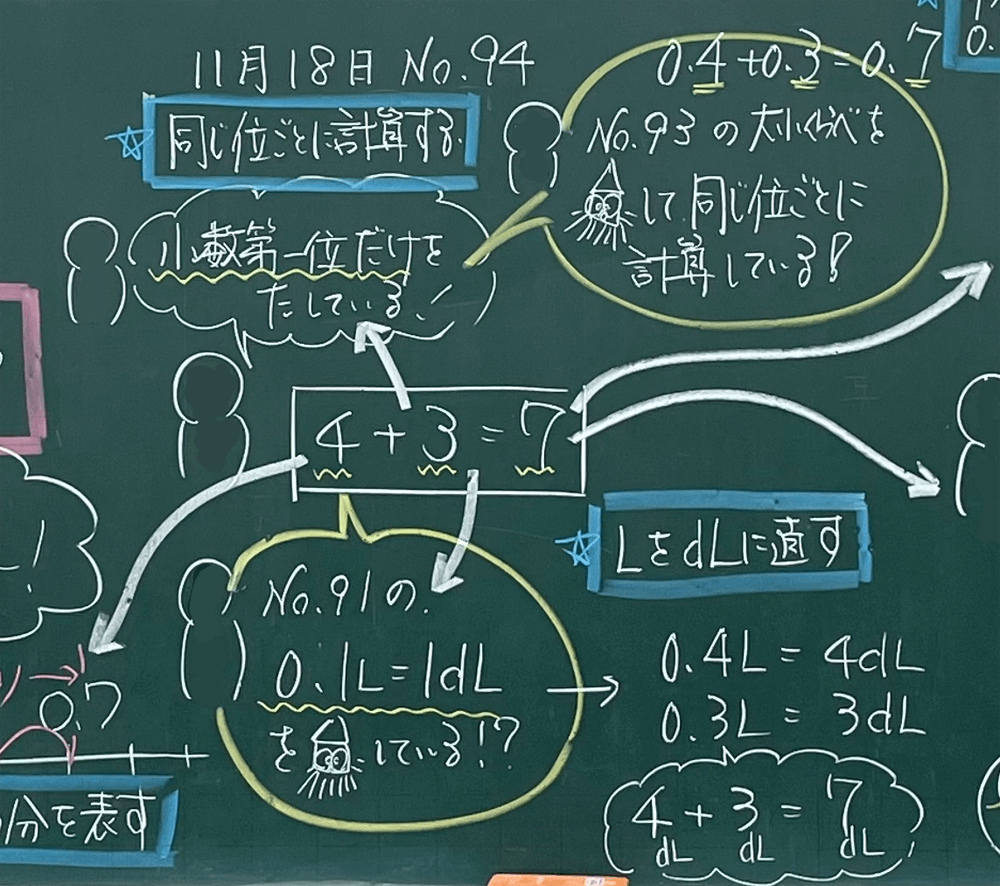 11月18日 No.94
同じ位ごとに計算する
0.4+0.3=0.7
No.93の大小くらべを
して同じ位ごとに
計算している!
小数第一位だけを
たしている!
4+3=7
LをdLに直す
No.91の
0.1L=1dL
を
している!?
0.4L=4dL
0.3L=3dL
4+3=7
dL dL dL
0.7
分を表す
0.